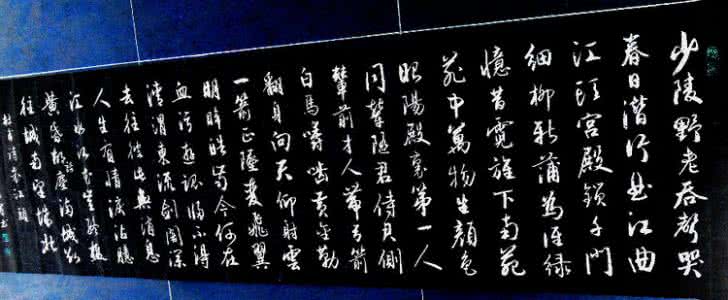 少陵野老吞聲哭
春日潛行曲江曲
江頭宮殿鎖千門
細柳新蒲為誰綠
憶昔霓旌下南苑
苑中萬物生顏色
昭陽殿裏第一人
同輦隨君侍君側
輦前才人帶弓箭
白馬嚼齧黃金勒
翻身向天仰射雲
一箭正墜雙飛翼
明眸皓齒今何在
血污遊魂歸不得
清渭東流劍閣深
去住彼此無消息
人生有情淚沾臆
江水江花豈終極
黃昏胡騎塵滿城欲
往城南望城北
杜甫詩哀江頭